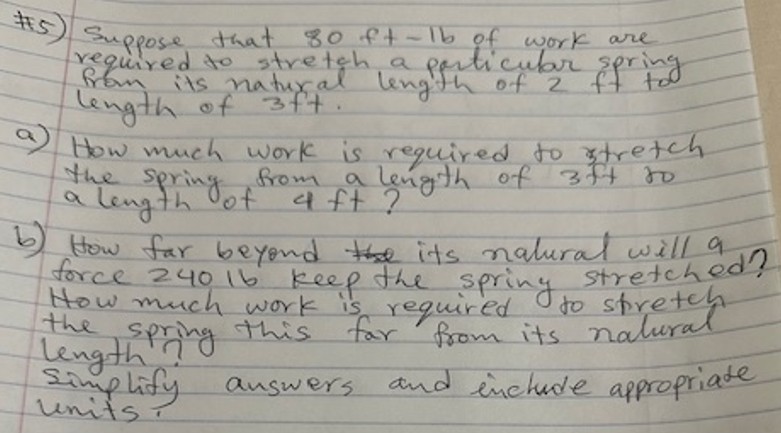 #5) Suppose that 80 ft-lb of work are
required to stretch a particular spring
from its natural length of 2 ft to
length of 3ft.
a) How much work is required to stretch
the spring from a length of 3ft to
a length of 4 ft?
b) How far beyond its natural will a
force 240 lb keep the spring stretched?
How much work is required to stretch
the spring this far from its natural
length?
Simplify answers and include appropriate
units.